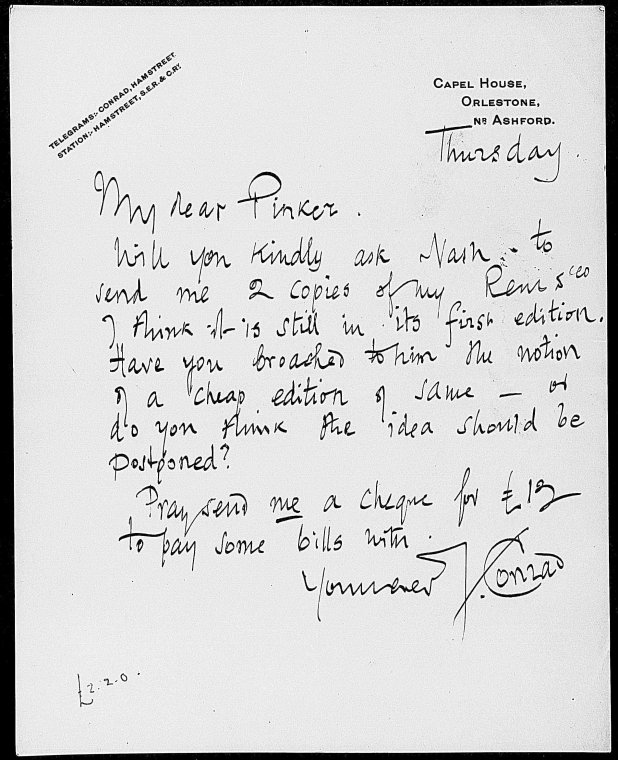 TELEGRAMS:- CONRAD, HAMSTREET.
STATION:- HAMSTREET, S.E.R. & C.RY.
CAPEL HOUSE,
ORLESTONE,
NR ASHFORD.
Thursday.
My dear Pinker.
Will you kindly ask Nash - to
send me 2 copies of my Remsces
I think it is still in its first edition.
Have you broached to him the notion
of a cheap edition of same — or
do you think the idea should be
postponed?
Pray send me a cheque for £12
to pay some bills with.
Yours ever J. Conrad
£2.2.0.